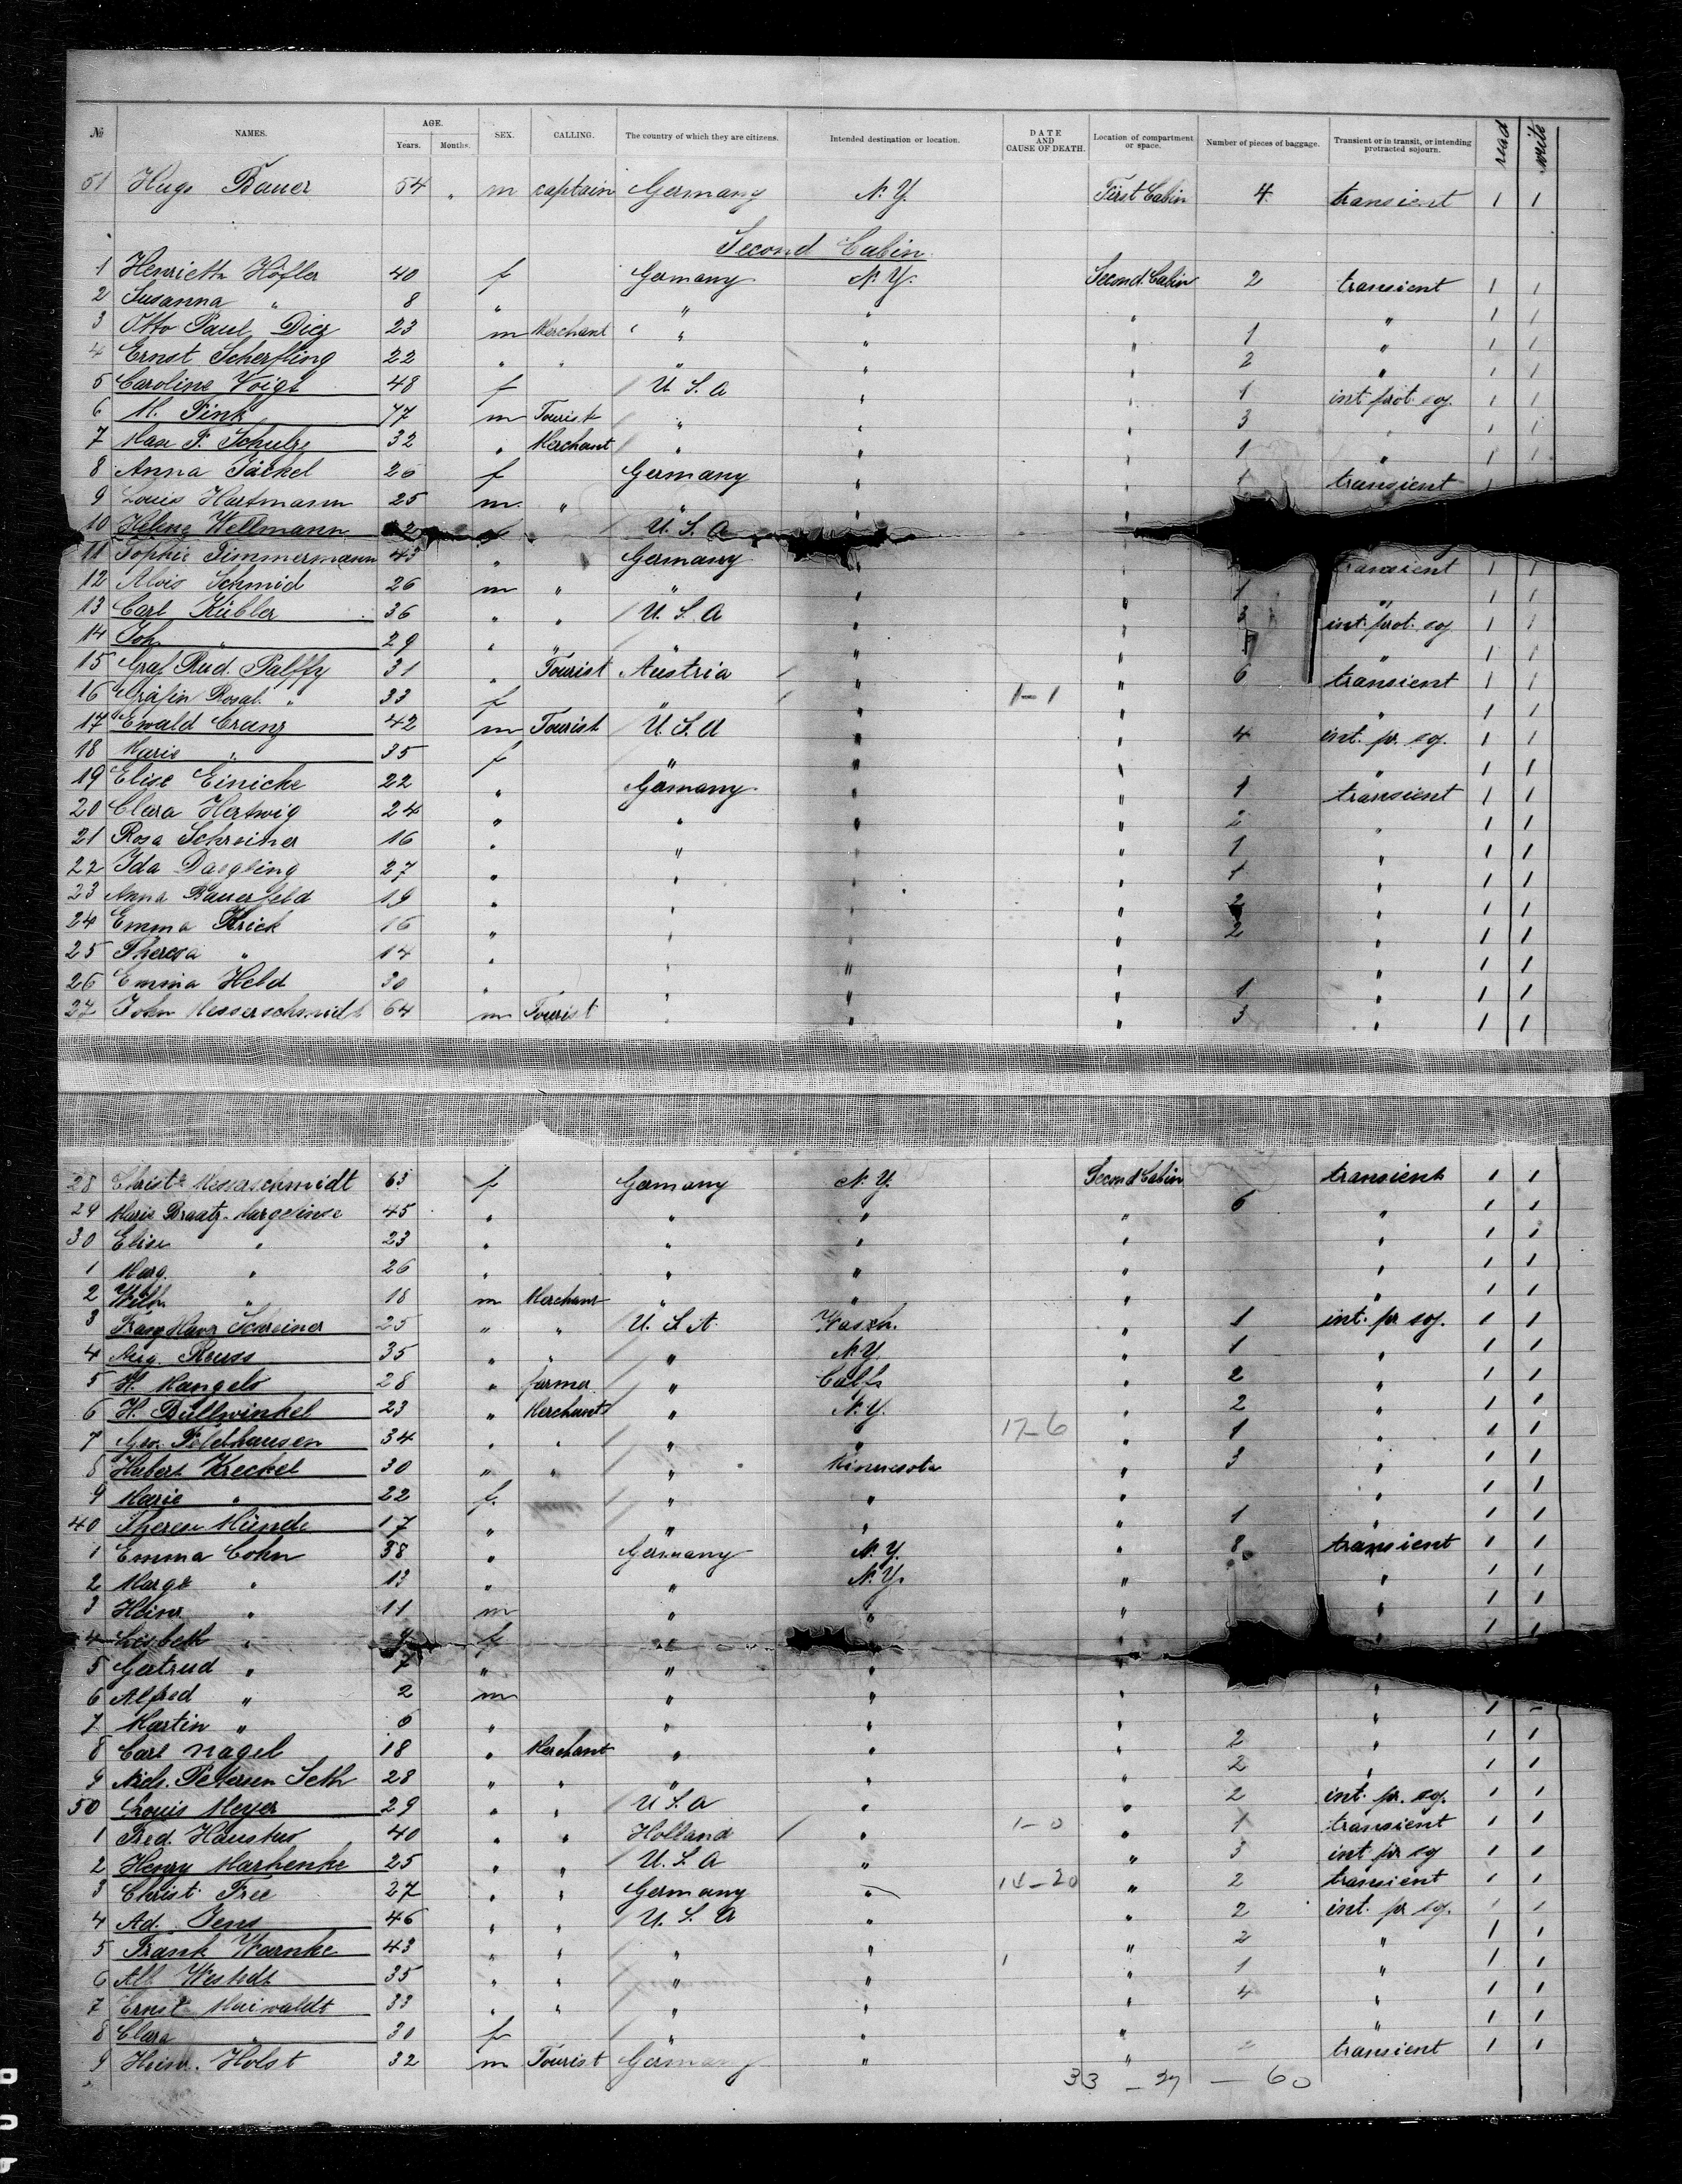 № NAMES. AGE. Years. Months. SEX. CALLING. The country of which they are citizens. Intended destination or location. DATE AND CAUSE OF DEATH. Location of compartment or space. Number of pieces of baggage. Transient or in transit, or intending protracted sojourn. read write
51 Hugo Bauer 54 " m captain Germany N.Y. First Cabin 4 transient 1 1
Second Cabin
1 Henrietta Höfler 40 f Germany N.Y. Second Cabin 2 transient 1 1
2 Susanna " 8 " " " " " 1 1
3 Otto Paul Diez 23 m Merchant " " " 1 " 1 1
4 Ernst Scherfling 22 " " " " " 2 " 1 1
5 Caroline Voigt 48 f U.S.A " " 1 int prot. soj. 1 1
6 M. Fink 77 m Tourist " " " 3 " 1 1
7 Max F. Schulze 32 " Merchant " " " 1 " 1 1
8 Anna Jäckel 26 f Germany " " 1 transient
9 Louis Hartmann 25 m " " " "
10 Helene Wellmann f U.S.A
11 Sophie Zimmermann 43 " Germany " " transient 1 1
12 Alois Schmid 26 m " " " " 1 " 1 1
13 Carl Kübler 36 " " U.S.A " " 3 int. prot. soj 1 1
14 Joh. " 29 " " " " " " 1 1
15 Graf Rud. Palffy 31 " Tourist Austria " " 6 transient 1 1
16 Gräfin Rosal. " 33 f " " 1-1 " " 1 1
17 Ewald Cranz 42 m Tourist U.S.A " " 4 int. pr. soj. 1 1
18 Marie " 35 f " " " " 1 1
19 Elise Einicke 22 " Germany " " 1 transient 1 1
20 Clara Hertwig 24 " " " " 2 " 1 1
21 Rosa Schreiner 16 " " " " 1 " 1 1
22 Ida Daegling 27 " " " " 1 " 1 1
23 Anna Bauerfeld 19 " " " " 2 " 1 1
24 Emma Krick 16 " " " " 2 " 1 1
25 Theresa " 14 " " " " " 1 1
26 Emma Held 30 " " " " 1 " 1 1
27 John Messerschmidt 64 m Tourist " " " 3 " 1 1
28 Messerschmidt 63 f Germany N.Y. Second Cabin transient 1 1
29 Marie Braatz 45 " " " " 6 " 1 1
30 Elise " 23 " " " " " 1 1
1 Marg. " 26 " " " " " 1 1
2 Wilh. " 18 m Merchant " " " " 1 1
3 Franz Xaver Schreiner 25 " " U.S.A. Wash. " 1 int. pr soj. 1 1
4 Aug. Kruss 35 " " " N.Y. " 1 " 1 1
5 H. Mangels 28 " farmer " Calf. " 2 " 1 1
6 H. Büllwinkel 23 " Merchant " N.Y. " 2 " 1 1
7 Geo. Feldhausen 34 " " " " 17-6 " 1 " 1 1
8 Hubert Kreckel 30 " " " Minnesota " 3 " 1 1
9 Marie " 22 f. " " " " 1 1
40 Therese Münde 17 " " " " 1 " 1 1
1 Emma Cohn 38 " Germany N.Y. " 8 transient 1 1
2 Margt " 13 " " N.Y. " " 1 1
3 Heinr. " 11 m " " " " 1 1
4 Lisbeth " f " " "
5 Gertrud " 7 " " " "
6 Alfred " 2 m " " " "
7 Martin " 6 " " " " " 1 -
8 Carl Nagel 18 " Merchant " " " 2 " 1 1
9 Nich. Petersen Seth 28 " " " " " 2 " 1 1
50 Louis Meyer 29 " " U.S.A " " 2 int. pr. soj. 1 1
1 Fred. 40 " " Holland " 1-0 " 1 transient 1 1
2 Henry Marhenke 25 " " U.S.A " " 3 int pr soj 1 1
3 Christ. Free 27 " " Germany " 14-20 " 2 transient 1 1
4 Ad. Jens 46 " " U.S.A " " 2 int. pr soj. 1 1
5 Frank Warnke 43 " " " " " 2 " 1 1
6 Alb Westedt 35 " " " " " 1 " 1 1
7 Ernst Maiwaldt 33 " " " " " 4 " 1 1
8 Clara " 30 f " " " " 1 1
9 Heinr. Holst 32 m Tourist Germany " " 2 transient 1 1
33 - 27 - 60